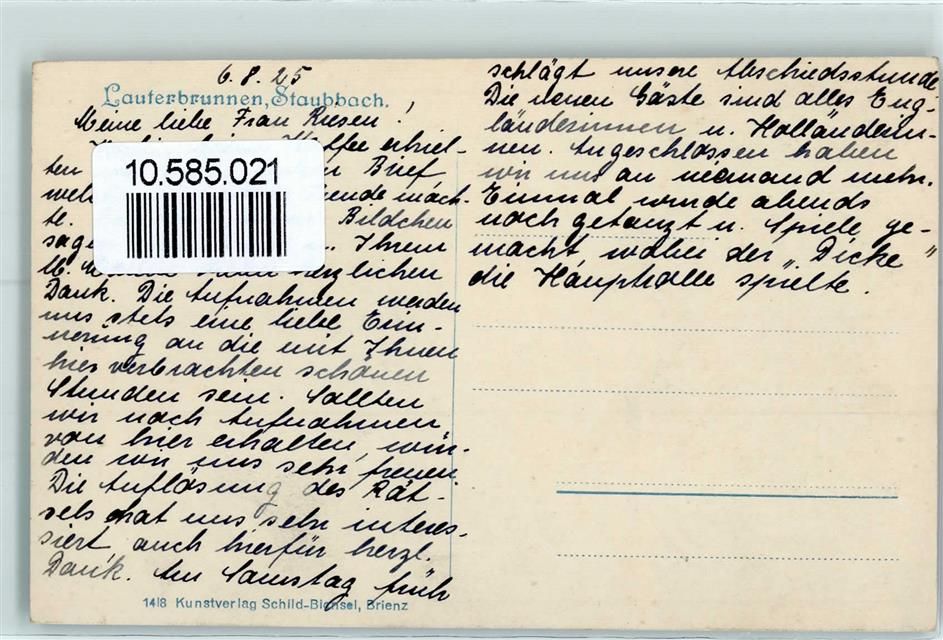 6.8.25
Lauterbrunnen, Staubbach.
Meine liebe Frau Riesen!
Kaffee erhiel-
ten Brief
wel mach-
te. Bildchen
sage Ihrem
herzlichen
Dank. Die Aufnahmen werden
uns stets eine liebe Erin-
nerung an die mit Ihnen
hier verbrachten schönen
Stunden sein. Sollten
wir noch Aufnahmen
von hier erhalten, wür-
den wir uns sehr freuen.
Die Auflösung des Rät-
sels, hat uns sehr interes-
siert, auch hierfür herzl.
Dank. Am Samstag früh
schlägt unsere Abschiedsstunde
Die neuen Gäste sind alles Eng-
länderinnen u. Holländerin-
nen. Angeschlossen haben
wir uns an niemand mehr.
Einmal wurde abends
noch getanzt u. Spiele ge-
macht, wobei der „Dicke"
die Hauptrolle spielte.
10.585.021
14|8 Kunstverlag Schild-Bichsel, Brienz